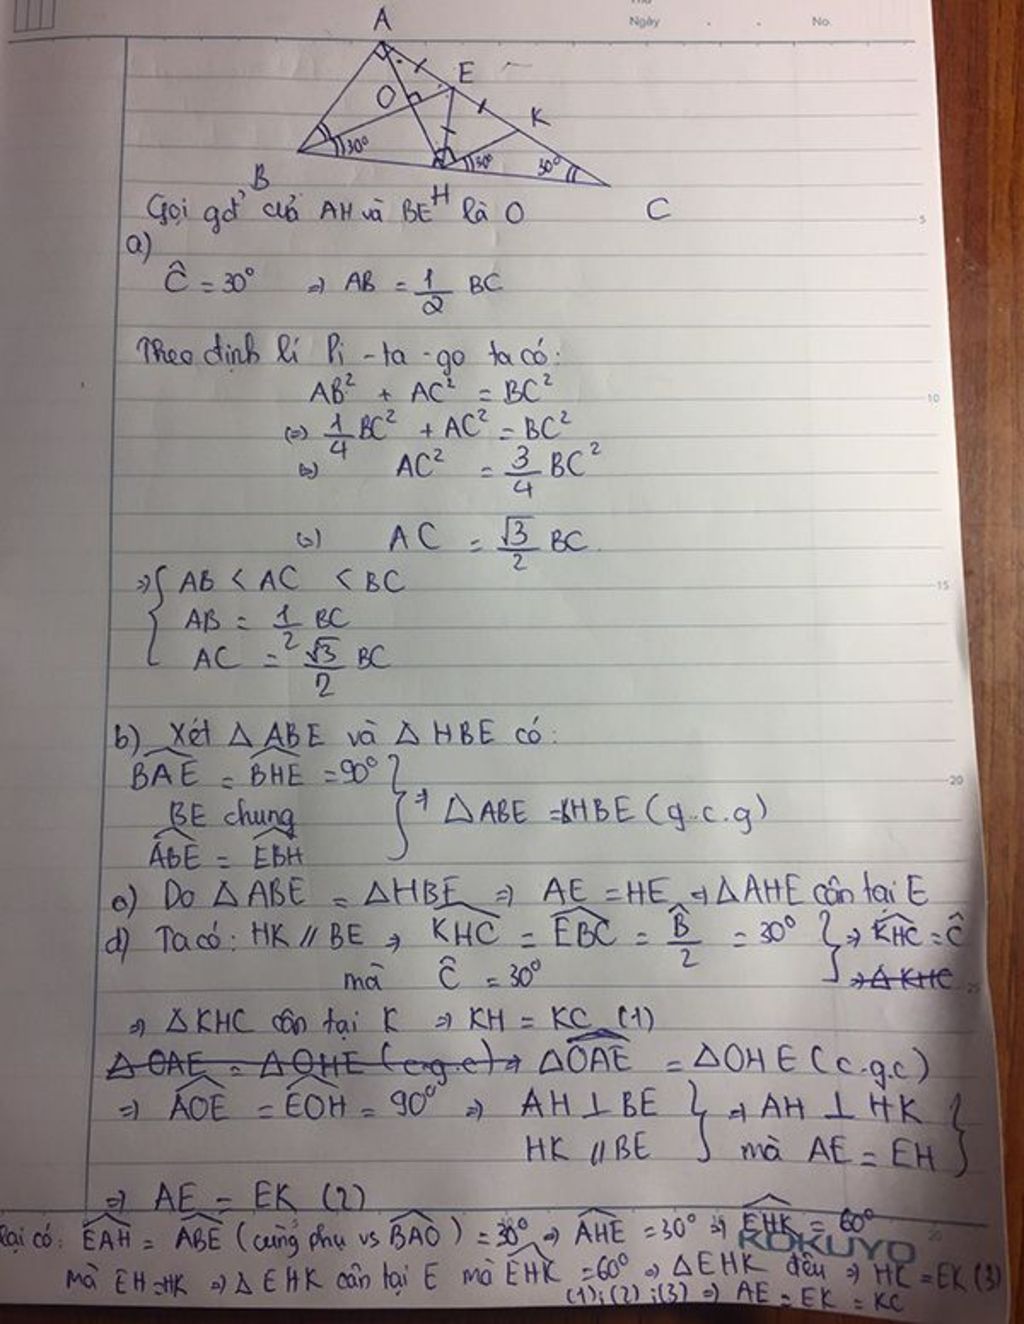 Ngày . . No.
A
E
O
K
30°
30°
30°
B
H
C
Gọi gđ' của AH và BE là O
5
a)
Ĉ = 30° => AB = 1/2 BC
Theo định lí Pi-ta-go ta có:
AB² + AC² = BC²
10
(=) 1/4 BC² + AC² = BC²
AC² = 3/4 BC²
AC = √3/2 BC
=> { AB < AC < BC
15
AB = 1/2 BC
AC = √3/2 BC
b) Xét △ ABE và △ HBE có:
BAE = BHE = 90°
20
BE chung => △ABE = △HBE (g.c.g)
ABE = EBH
c) Do △ABE = △HBE => AE = HE => △AHE cân tại E
d) Ta có: HK // BE => KHC = EBC = B̂/2 = 30° } => KHC = Ĉ
mà Ĉ = 30° => △ KHC
25
=> △KHC cân tại K => KH = KC (1)
△OAE = △OHE (c.g.c) => △OAE = △OHE (c.g.c)
=> AOE = EOH = 90° => AH ⊥ BE } => AH ⊥ HK }
HK // BE mà AE = EH
=> AE = EK (2)
lại có: EAH = ABE (cùng phụ vs BAO) = 30° => AHE = 30° => EHK = 60°
KOKUYO
mà EH=HK => △EHK cân tại E mà EHK = 60° => △EHK đều => HK = EK (3)
(1);(2);(3) => AE = EK = KC